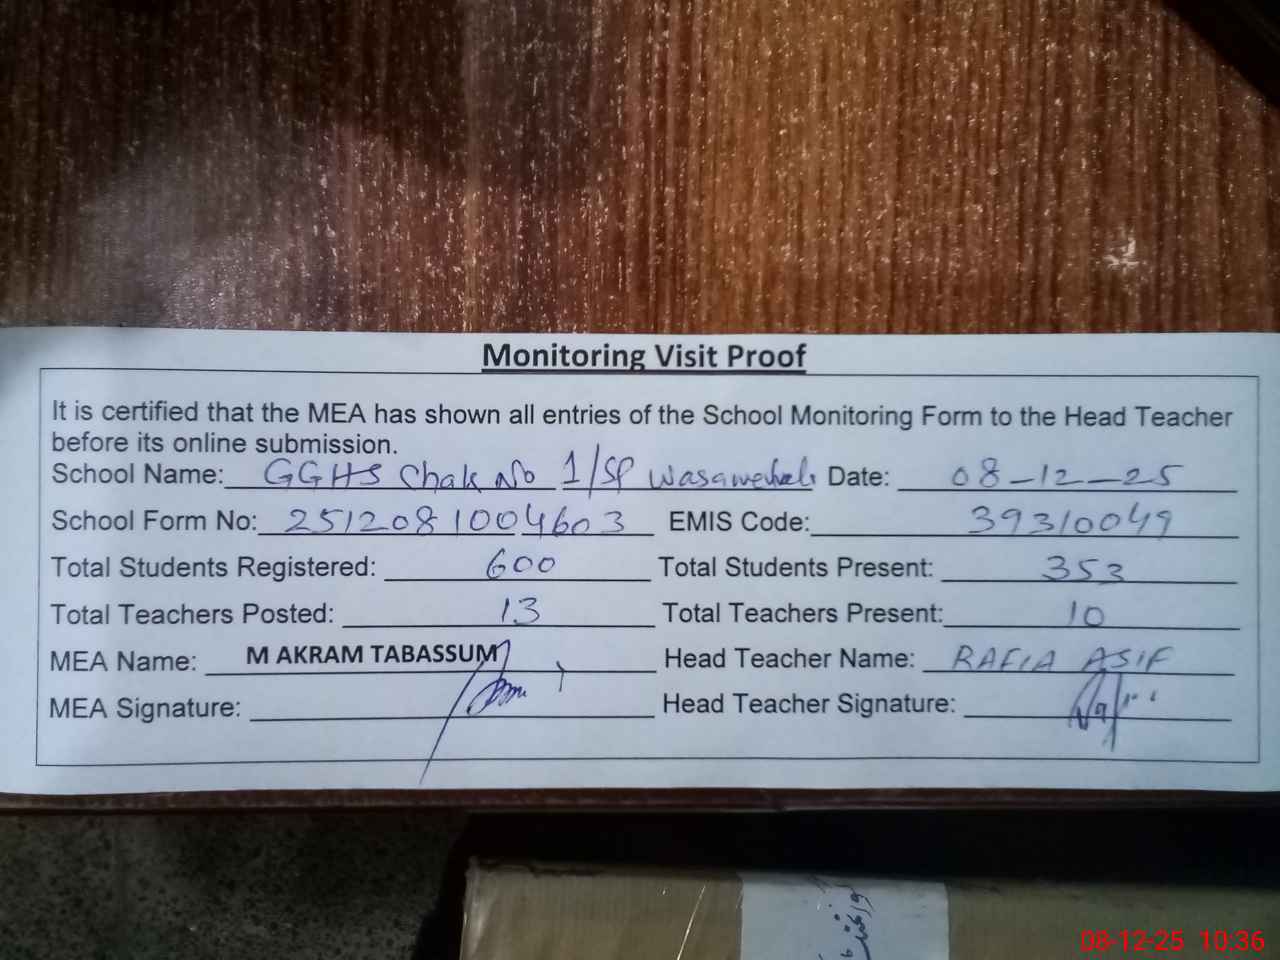 Monitoring Visit Proof
It is certified that the MEA has shown all entries of the School Monitoring Form to the Head Teacher
before its online submission.
School Name: GGHS Chak No 1/SP Date: 08-12-25
School Form No: 2512081004603 EMIS Code: 39310049
Total Students Registered: 600 Total Students Present: 353
Total Teachers Posted: 13 Total Teachers Present: 10
MEA Name: M AKRAM TABASSUM Head Teacher Name: RAFIA ASIF
MEA Signature: Head Teacher Signature:
08-12-25 10:36